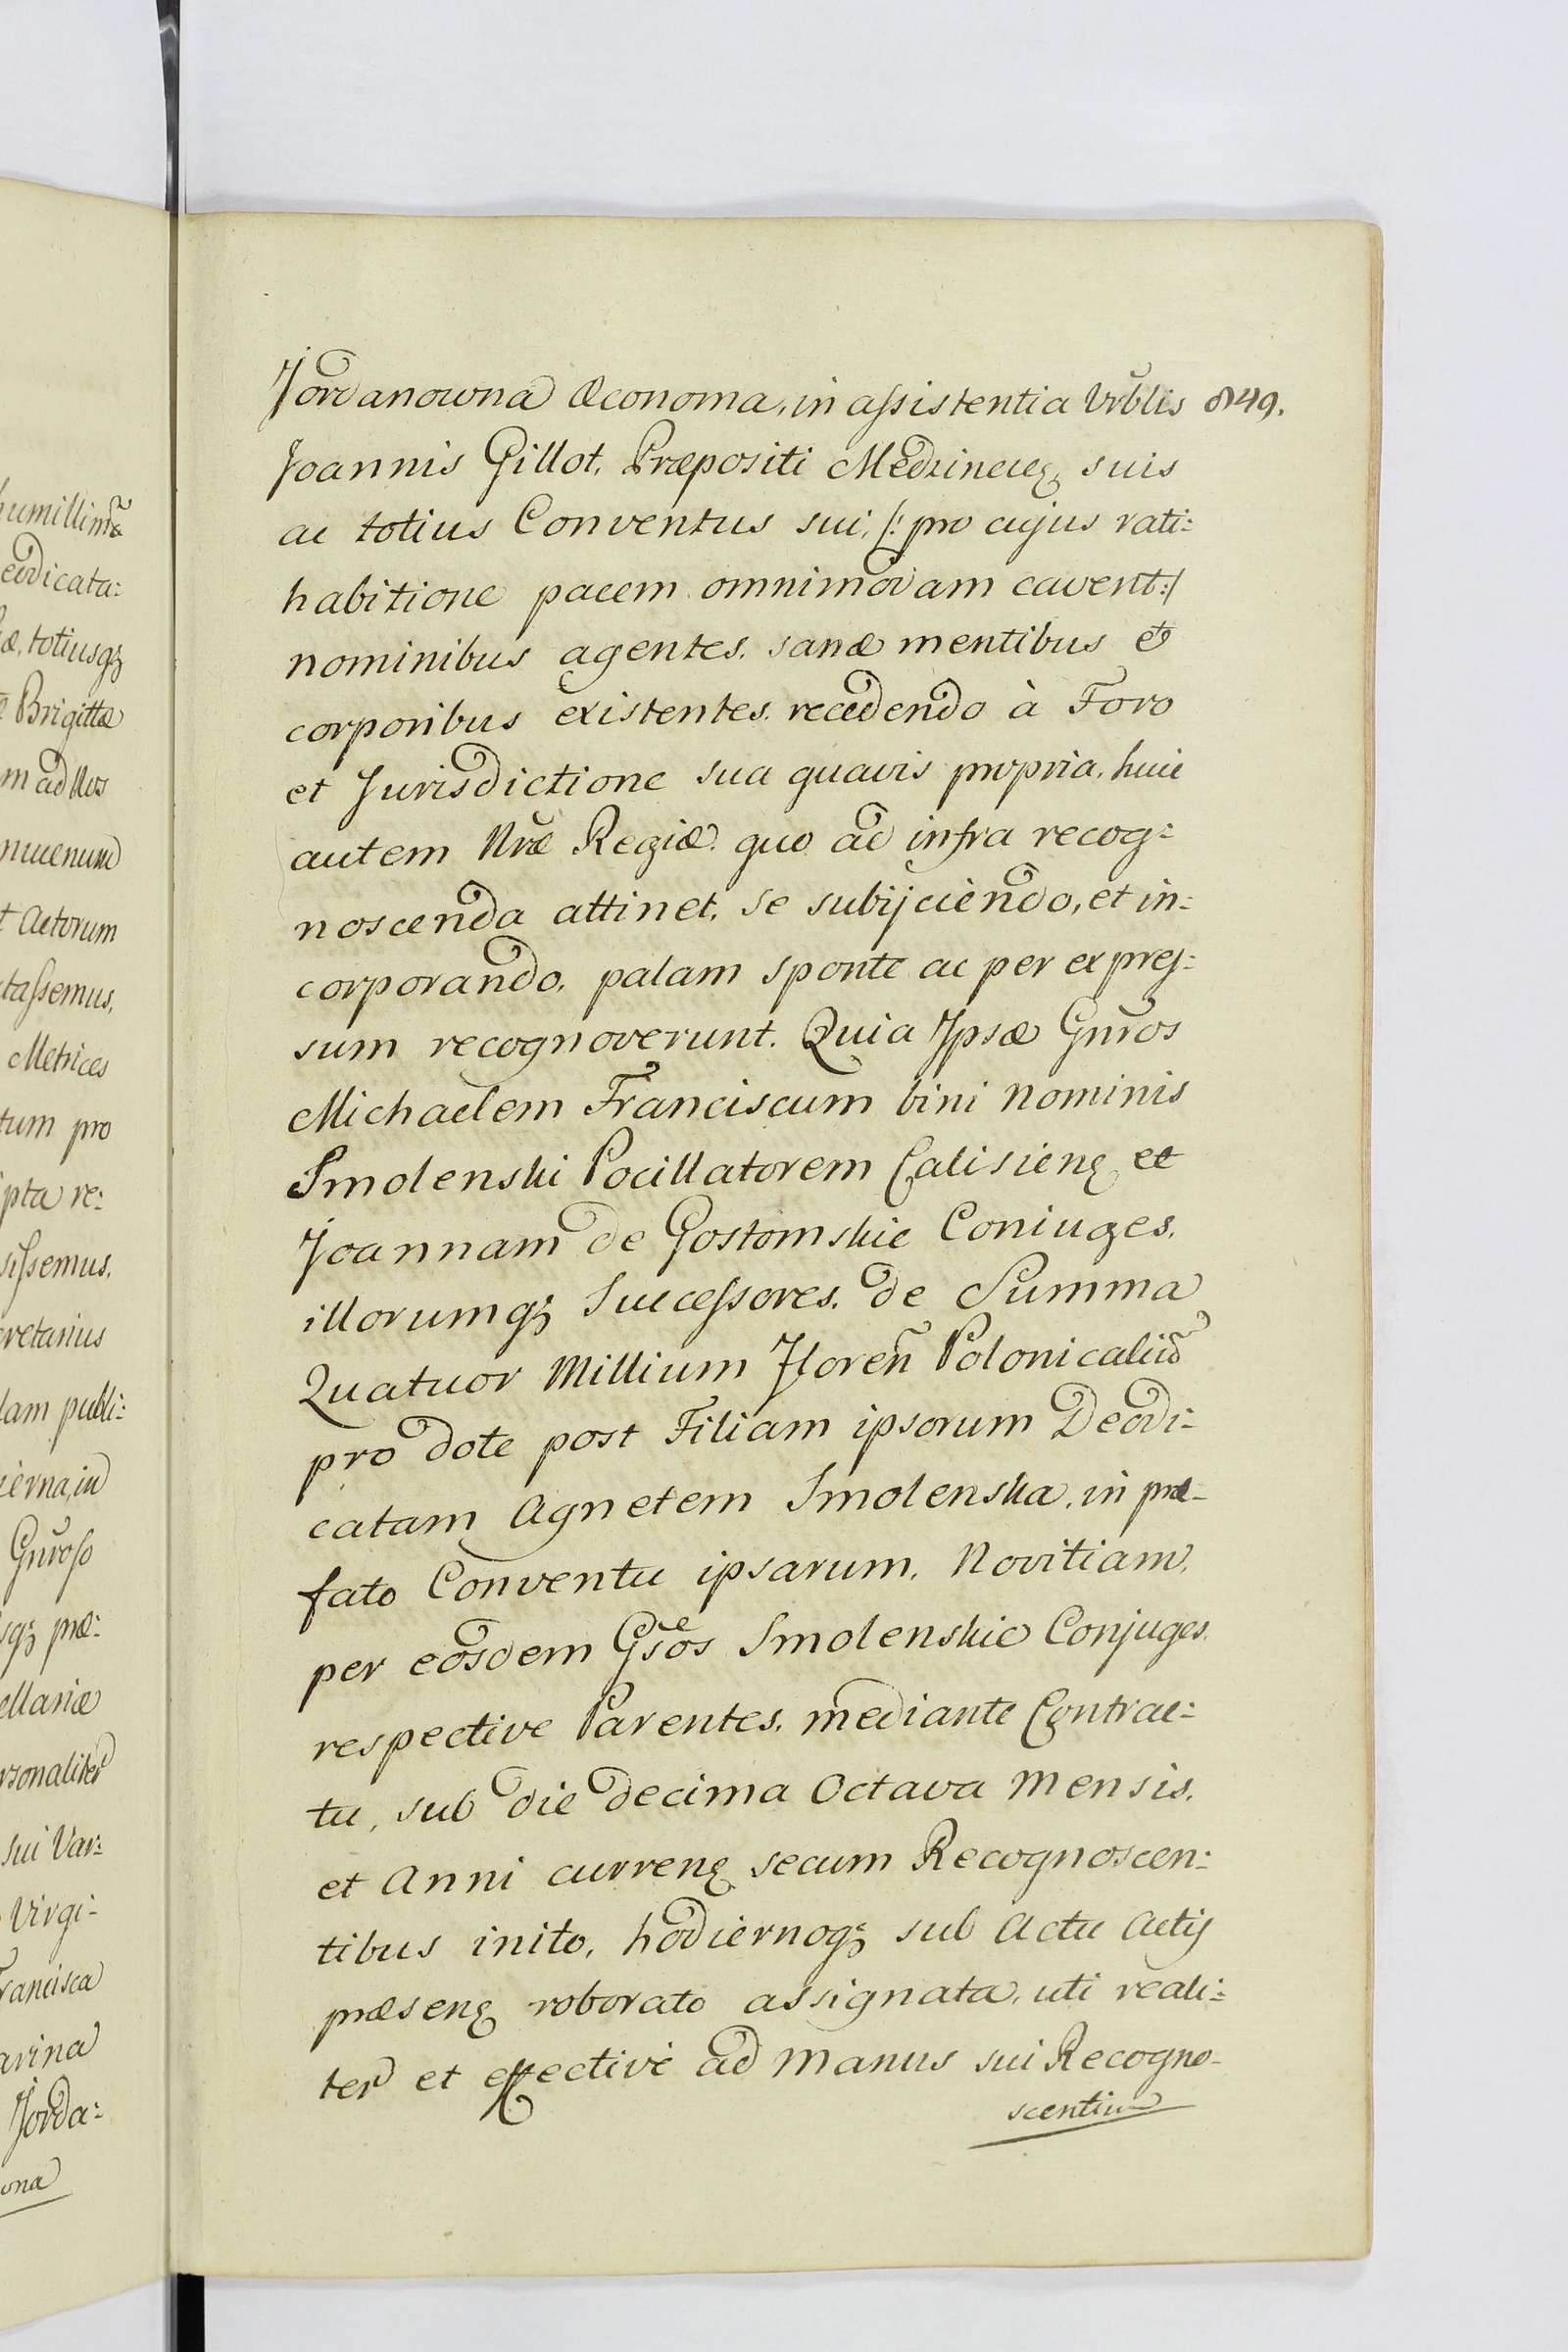 humillimæ
eodicata:
æ, totiusq;
Brigittæ
m ad Nos
t Actorum
tassemus,
Metrices
tum pro
ipta re:
sissemus,
cretarius
lam publi:
ierna, in
Gnroso
sq; præ:
ellariæ
rsonaliter
sui Var:
Virgi-
Francisca
arina
Jorda:
wna
Jordanowna Œconoma, in assistentia Vrblis 849.
Joannis Gillot, Præpositi Medzineceñ, suis
ac totius Conventus sui, /: pro cujus rati:
habitione pacem omnimodam cavent :/
nominibus agentes, sanæ mentibus et
corporibus existentes, recedendo à Foro
et Jurisdictione sua quavis propria, huic
autem Nræ Regiæ quo ad infra recog:
noscenda attinet, se subijciendo, et in:
corporando, palam sponte ac per expres:
sum recognoverunt. Quia Ipsæ Gnros
Michaelem Franciscum bini nominis
Smolenski Pocillatorem Calisieñ et
Joannam de Gostomskie Coniuges,
illorumq; Successores, de Summa
Quatuor Millium Floreñ Polonicaliũ
pro dote post Filiam ipsorum Deodi:
catam Agnetem Smolenska, in præ-
fato Conventu ipsarum, Novitiam,
per eosdem Gsos Smolenskie Conjuges,
respective Parentes, mediante Contrac:
tu, sub die decima Octava Mensis,
et Anni curreñ secum Recognoscen:
tibus inito, hodiernoq; sub Actu Actis
præseñ roborato assignata, uti reali:
ter et effective ad manus sui Recogno-
scentium